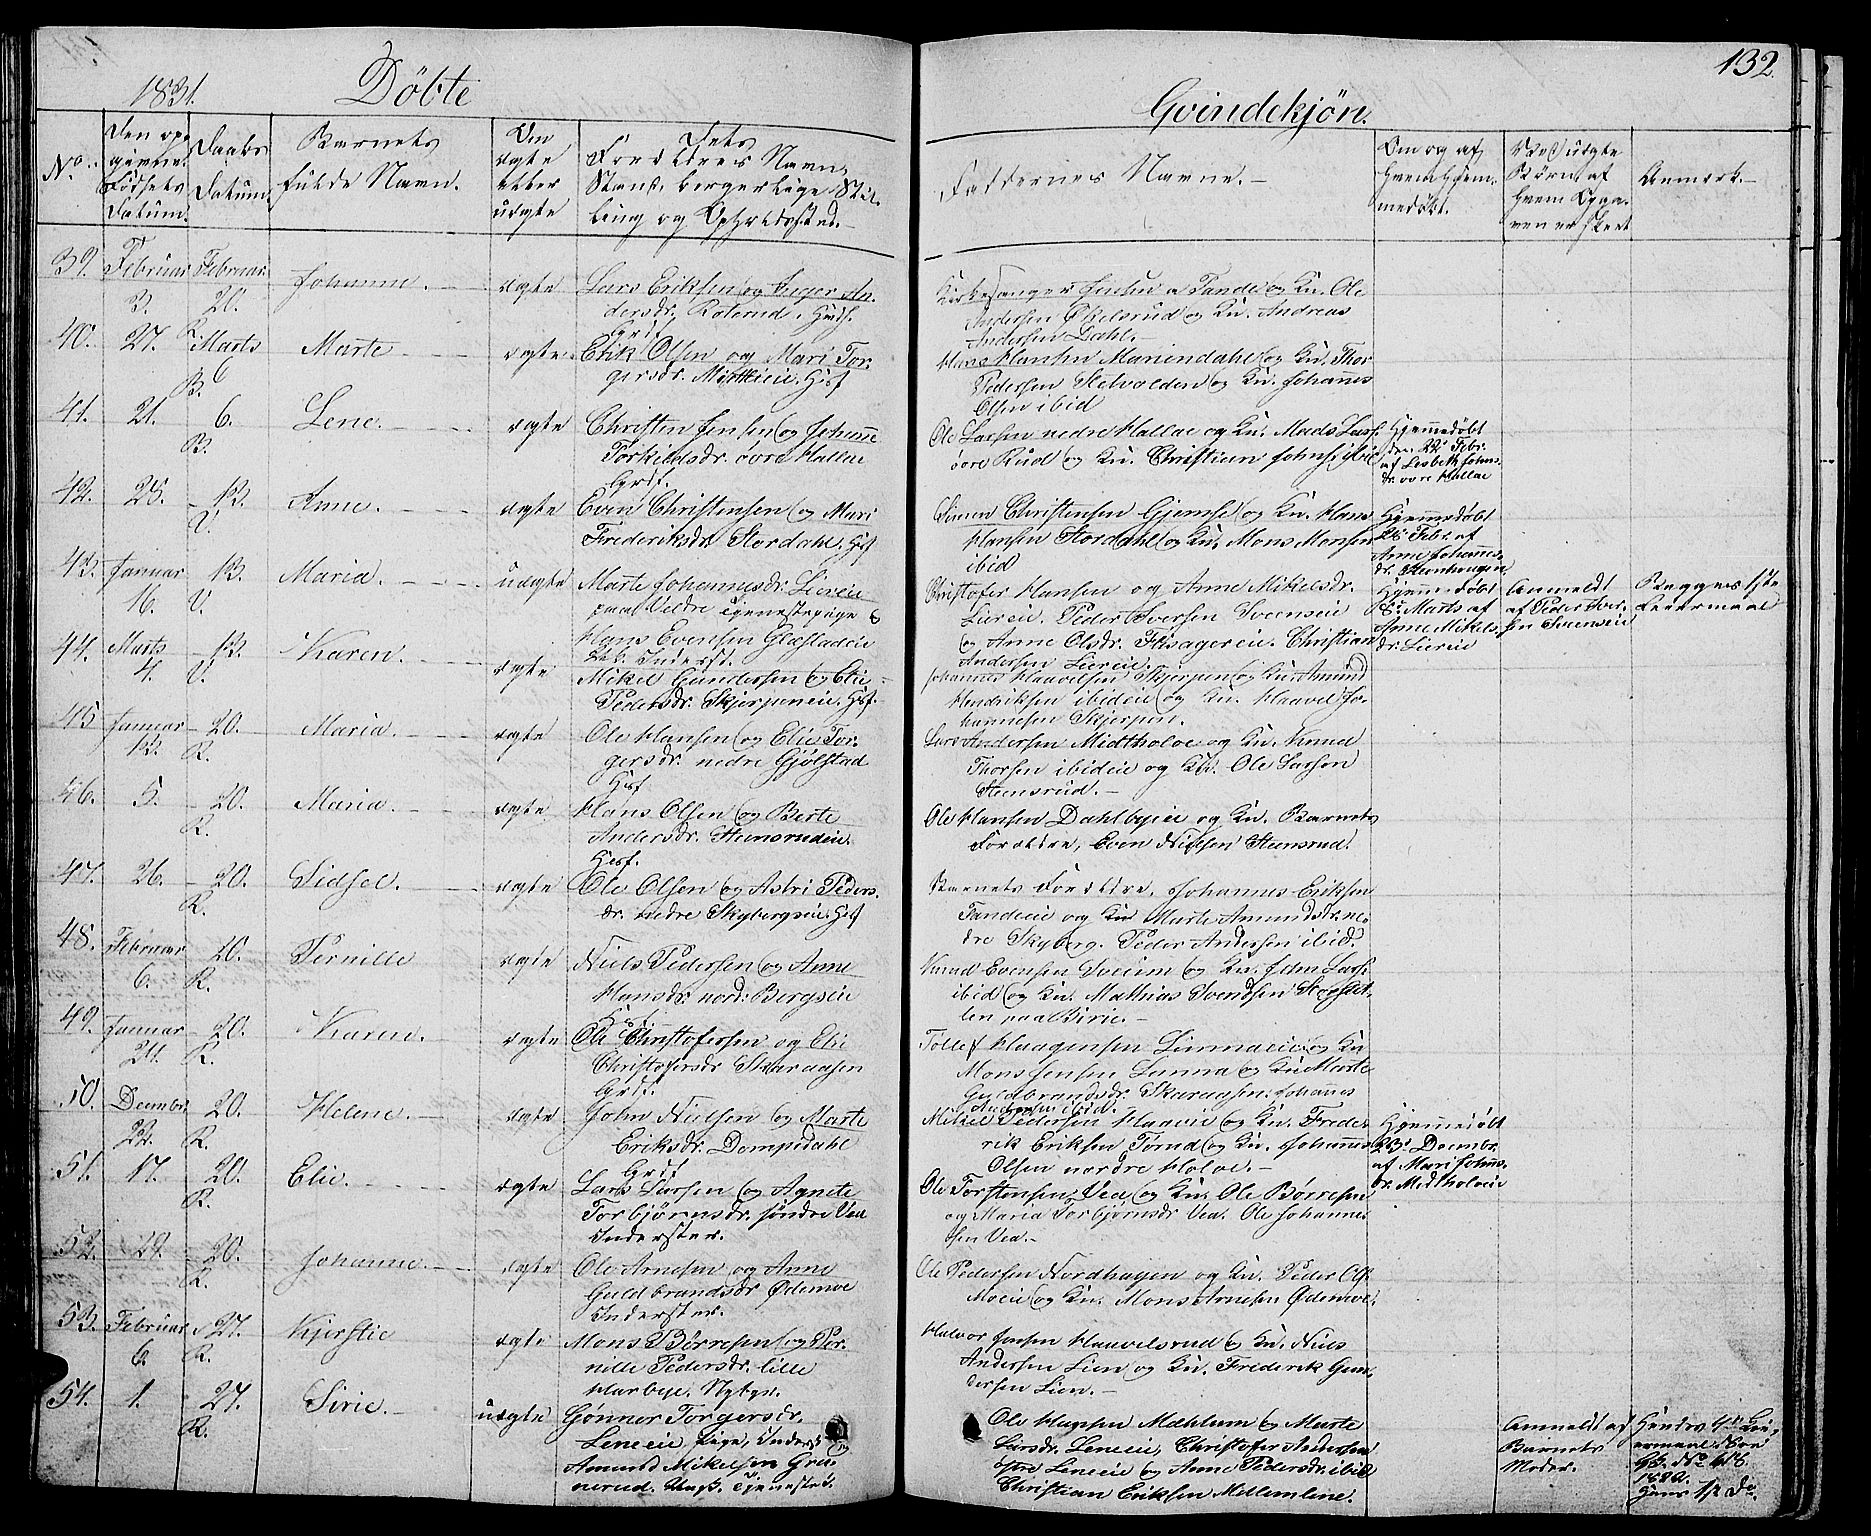 132.
1831. Döbte Qvindekjön.
No. Den opgivne Födsels Datum. Daabs Datum. Barnets fulde Navn. Om ægte eller uægte Forældres Navn, Stand, borgerlige Stilling og Opholdssted.
Faddernes Navne. Om og af hvem hjemmedöbt. Ved uægte Börn, af hvem Opgaven er skeet Anmærk.
39. Februar 3. Februar 20. R. Johanne. ægte Lars Eriksen og Inger Andersdr. Roterud. Huusf.
Kirkesanger Jensen a Tande og Ku. Ole
Andersen Økelsrud og Ku. Andreas
Andersen Dahl.
40. 27. Marts 6 B. Marte ægte Erik Olsen og Mari Torgersdr. Mitteie. Hsf
Hans Hansen Mariendahl og Ku. Thor
Pedersen Stetvolden og Ku. Johannes
Olsen ibid
41. 21. 6. B. Lene. ægte Christen Jensen og Johanne
Torkildsdr. övre Hallae
Grdf.
Ole Larsen nedre Hallae og Ku. Mads Lars.
övre Rud og Ku. Christian Johns. ibid
Hjemmedöbt
den 22 Febr.
af Lisbeth Johnsdr. övre Hallae
42. 25. 13. V. Anne. ægte Even Christensen og Mari
Frederiksdr. Stordahl. Hsf
Simen Christensen Gjemse og Ku. Hans
Hansen Stordahl og Ku. Mons Monsen
ibid
Hjemmedöbt
26 Febr. af
Anne Johannesdr. Steenhaugen
43. Januar 16. 13. V. Maria. uægte Marte Johannesdr. Liereie
paa Vedre Tjenestepige &
Hans Evensen Glæstadeie
Ibid. Inderst.
Christofer Hansen og Anne Mikelsdr.
Liereie. Peder Iversen Sveenseie
og Anne Olsdr. Flisagereie. Christian
Andersen Liereie.
Hjemmedöbt
8 Marts af
Anne Mikelsdr. Liereie
Anmeldt
af Peder Iversen Sveenseie
Begges 1ste
Leiermaal
44. Marts 4. 13. V. Karen. ægte Mikel Gundersen og Elie
Pedersdr. Skjerpeneie. Hsf.
Johannes Haavelsen Skjerpen og Ku. Amund
Hendriksen ibideie og Ku. Haavel Johannesen Skjerpen.
45 Januar 12. 20. R. Maria. ægte Ole Hansen og Elie Torgersdr. nedre Gjölstad
Hsf
Lars Andersen Midtholoe og Ku. Knud
Thorsen ibideie og Ku. Ole Larsen
Steensrud.
46. 5. 20. R. Maria. ægte Hans Olsen og Berte
Andersdr. Steensrudeie.
Husf.
Ole Hansen Dahlbyeie og Ku. Barnets
Forældre, Even Nielsen Steensrud.
47. 26. 20. R. Sidsel. ægte Ole Olsen og Astri Pedersdr. nedre Skybergseie. Hsf
Barnets Forældre. Johannes Eriksen
Tandeeie og Ku Marte Amundsdr. nedre Skyberg. Peder Andersen ibid.
48. Februar 6. 20. R. Pernille ægte Niels Pedersen og Anne
Hansdr. nord: Bergseie
Knud Evensen Sveium og Ku. Jens Lars.
ibid og Ku. Mathias Svendsen
paa Birie.
49. Januar 24. 20. R. Karen. ægte Ole Christofersen og Elie
Christofersdr Skaraasen
Grdf.
Tollef Haagensen Lunnaeie og Ku
Mons Jensen Lunna og Ku Marte
Guldbrandsdr. Skaraasen. Johannes
ibid.
50. Decembr 22. 20. R. Helene. ægte John Nielsen og Marte
Eriksdr. Dompidahl
Grdf
Mikel Pedersen Haavie og Ku. Frederik Eriksen Torud og Ku. Johannes
Olsen nordre Holoe.
Hjemmedöbt
23 Decembr.
af Mari Johns.
dr. Midtholoeie
51. 17. 20. R. Elie. ægte Lars Larsen og Agnete
Torbjörnsdr. söndre Vea
Inderster.
Ole Torstensen Vea og Ku. Ole Börresen
og Maria Torbjörnsdr Vea. Ole Johannessen Vea.
52. 29. 20. R. Johanne. ægte Ole Arnesen og Anne
Guldbrandsdr Ødemoe
Inderster.
Ole Pedersen Nordhagen og Ku. Peder Ols.
Moeie og Ku. Mons Arnesen Ødemoe.
53. Februar 6. 27. R. Kjerstie ægte Mons Börresen og Pernille Pedersdr. lille
Harbye. Nybgr.
Halvor Jensen Haavelsrud & Ku. Niels
Andersen Lien og Ku. Frederik Gundersen Lien.
54. 1. 27. R. Sirie. uægte Gönnor Torgersdr.
Leneeie, Pige, Inderst og
Amund Mikelsen Grönerud. Ungk. Tjenested.
Ole Hansen Mæhlum og Marte
Larsdr. Leneeie, Christofer Andersen
östre Leneeie og Anne Pedersdr. ibid
Christian Eriksen Mellemlene.
Anmeldt af
Barnets
Moder.
Hendes 4de Leiermaal
1822.
Hans 1st Do.